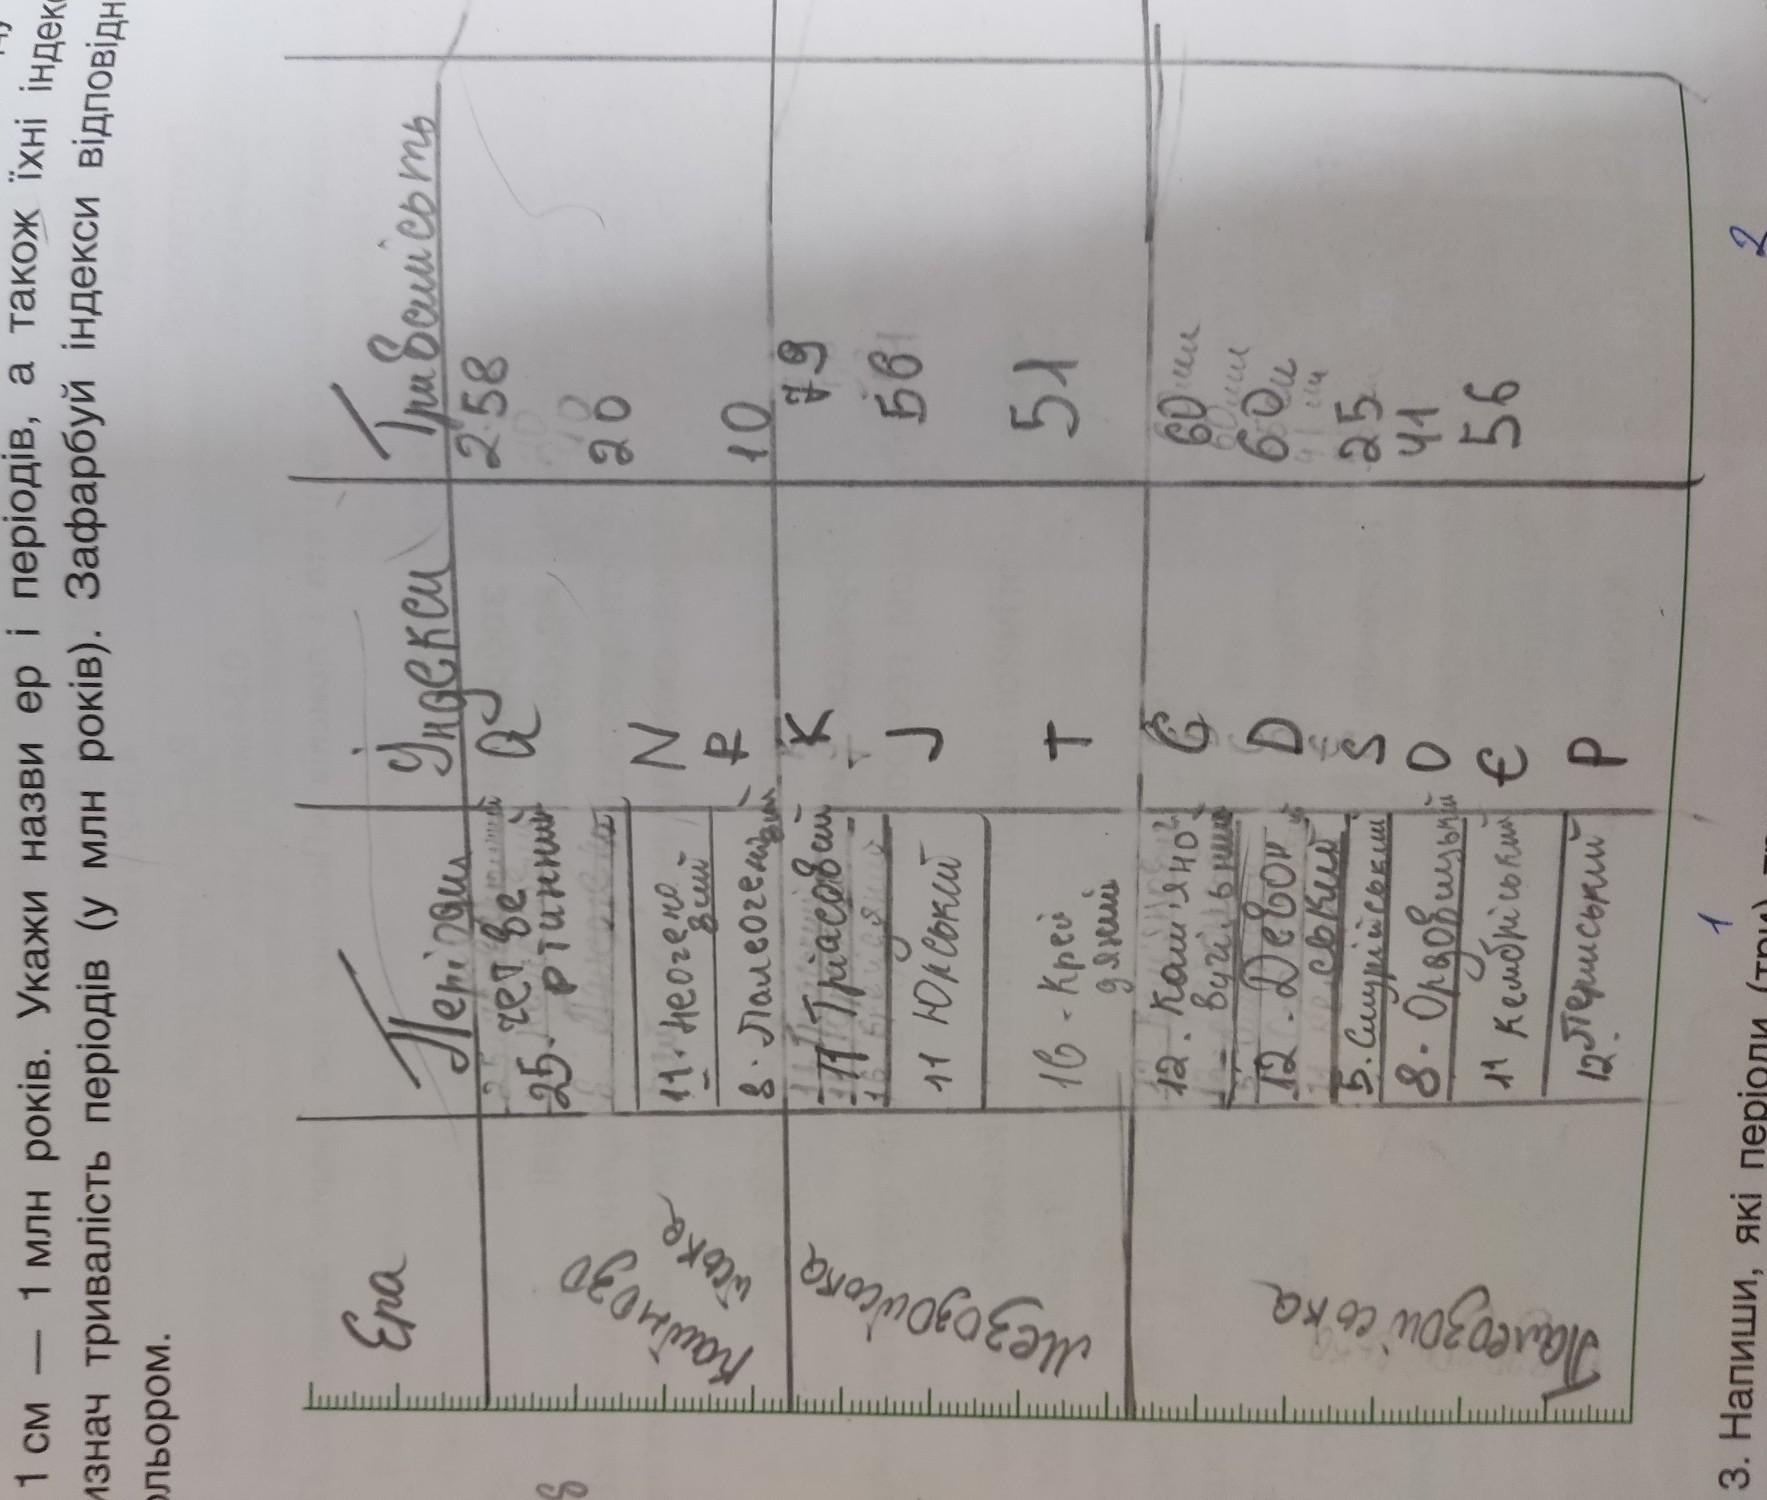 1 см — 1 млн років. Укажи назви ер і періодів, а також їхні індек
изнач тривалість періодів (у млн років). Зафарбуй індекси відповідн
ольором.
Ера Періоди Індекси Тривалість
Кайнозо
йська
25. четве
ртинний
Q
2 58
11. неоге но
вий
N
20
8. Палеогеновий
P
10
Мезозойська
11 Тріасовий
K
79
11 Юрський
J
56
16 - Крей
дяний
T
51
Палеозой
ська
12. Кам'яно
вугільний
C
60 млн
12. Девон
ський
D
60 м
5. Силурійський
S
25
8. Ордовицький
O
41
11 кембрійський
Є
56
12. Пермський
P
1
2
3. Напиши, які періоди (три)